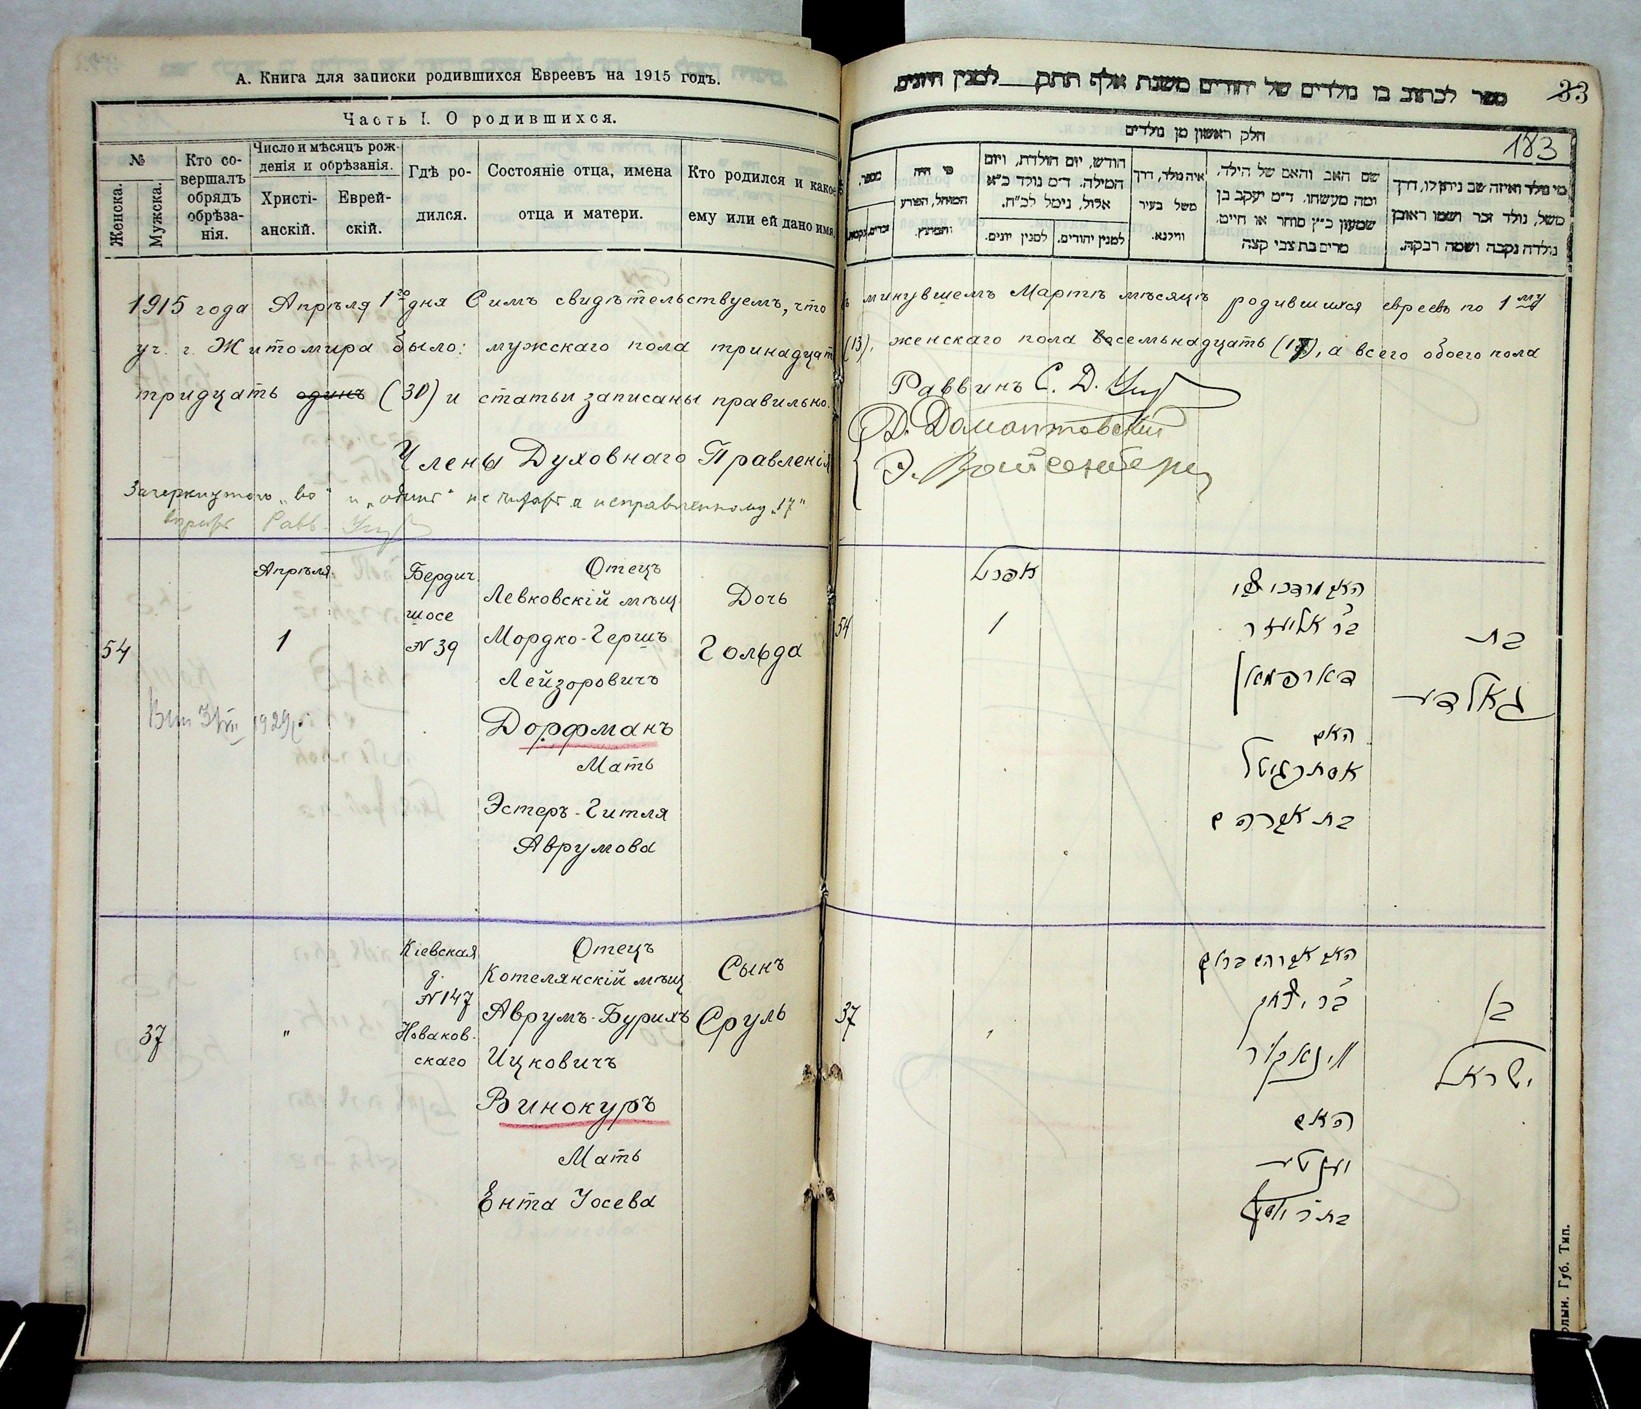 А. Книга для записки родившихся Евреевъ на 1915 годъ.
Часть I. О родившихся.
№
Женска.
Мужска.
Кто со-
вершалъ
обрядъ
обрѣза-
нія.
Число и мѣсяцъ рож-
денія и обрѣзанія.
Христі-
анскій.
Еврей-
скій.
Гдѣ ро-
дился.
Состояніе отца, имена
отца и матери.
Кто родился и како
ему или ей дано имя
1915 года Апрѣля 1го дня Симъ свидѣтельствуемъ, что
уч. г. Житомира было: мужскаго пола тринадцат
тридцать одинъ (30) и статьи записаны правильно.
Члены Духовнаго Правленія
Зачеркнутого „во" и „одинъ" не читать а исправленному „17"
вѣрить Равв.
Апрѣля
54
1
Бердич
шосе
№ 39
Отецъ
Левковскій мѣщ
Мордко-Гершъ
Лейзоровичъ
Дорфманъ
Мать
Эстеръ-Гитля
Аврумова
Дочь
Гольда
1929
37
"
Кіевская
д.
№ 147
Новаков-
скаго
Отецъ
Котелянскій мѣщ
Аврумъ-Бурихъ
Ицковичъ
Винокуръ
Мать
Ента Іосева
Сынъ
Сруль
33
183
ספר לכתוב בו נולדים של יהודים משנת אלף תתק למנין היונים
חלק ראשון מן נולדים
מספר.
זכרים.
נקבות.
מי היה
המוהל, הפורע
והמוצץ.
חודש, יום הולדת, ויום
המילה. ד״מ נולד כ״א
אלול, נימל לכ״ח.
למנין יונים.
למנין יהודים.
איה נולד, דרך
משל בעיר
ווילנא.
שם האב והאם של הילד,
ומה מעשהו. ד״מ יעקב בן
שמעון כ״ץ סוחר או חייט.
מרים בת צבי קצה
מי נולד ואיזה שם ניתן לו, דרך
משל, נולד זכר ושמו ראובן
נולדה נקבה ושמה רבקה.
минувшемъ Мартѣ мѣсяцѣ родившихся евреевъ по 1му
(13), женскаго пола восемьнадцать (17), а всего обоего пола
Раввинъ С. Д.
Д. Домонтовскій
54
אפריל
1
האב מרדכי צבי
ב״ר אליעזר
דארפמאן
האם
אסתר גיטל
בת אברהם
בת
גאלדע
37
האב אברהם ברוך
ב״ר יצחק
ווינאקור
האם
יענטע
בת ר׳ יוסף
בן
ישראל
Губ. Тип.